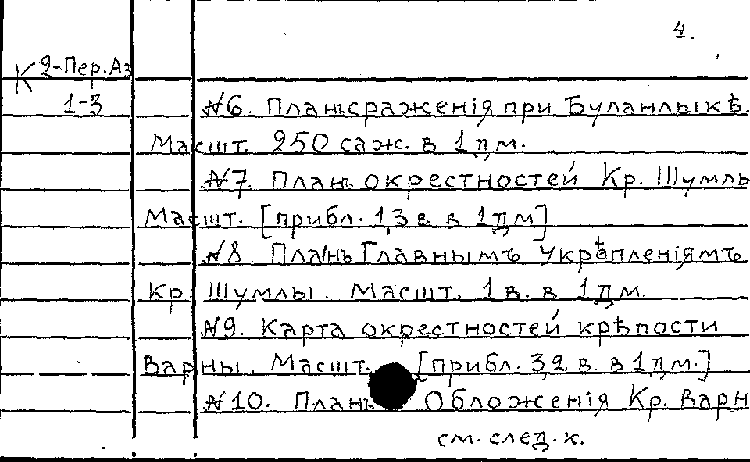 4.
К 2-Пер.Аз
1-3
№6. Планъ сраженія при Буланлыкѣ.
Масшт. 250 саж. в 1 дм.
№7. Планъ окрестностей Кр. Шумлы
Масшт. [прибл. 1,3 в. в 1 дм]
№8. Планъ Главнымъ Укрѣпленіямъ
Кр. Шумлы. Масшт. 1 в. в 1 дм.
№9. Карта окрестностей крѣпости
Варны. Масшт. [прибл. 3,2 в. в 1 дм.]
№10. Планъ Обложенія Кр. Варн
см. след. к.